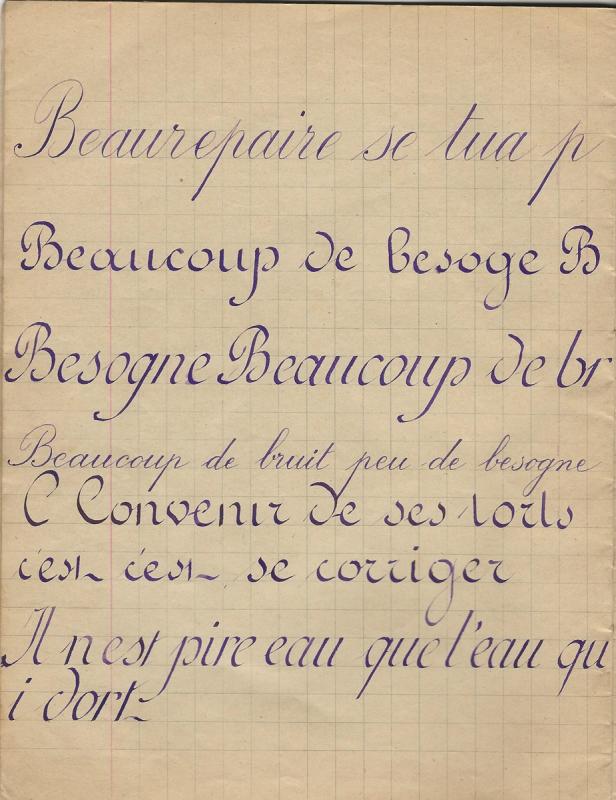 Beaurepaire se tua p
Beaucoup de besoge B
Besogne Beaucoup de br
Beaucoup de bruit peu de besogne
C Convenir de ses torts
c'est c'est se corriger
Il n'est pire eau que l'eau qu
i dort